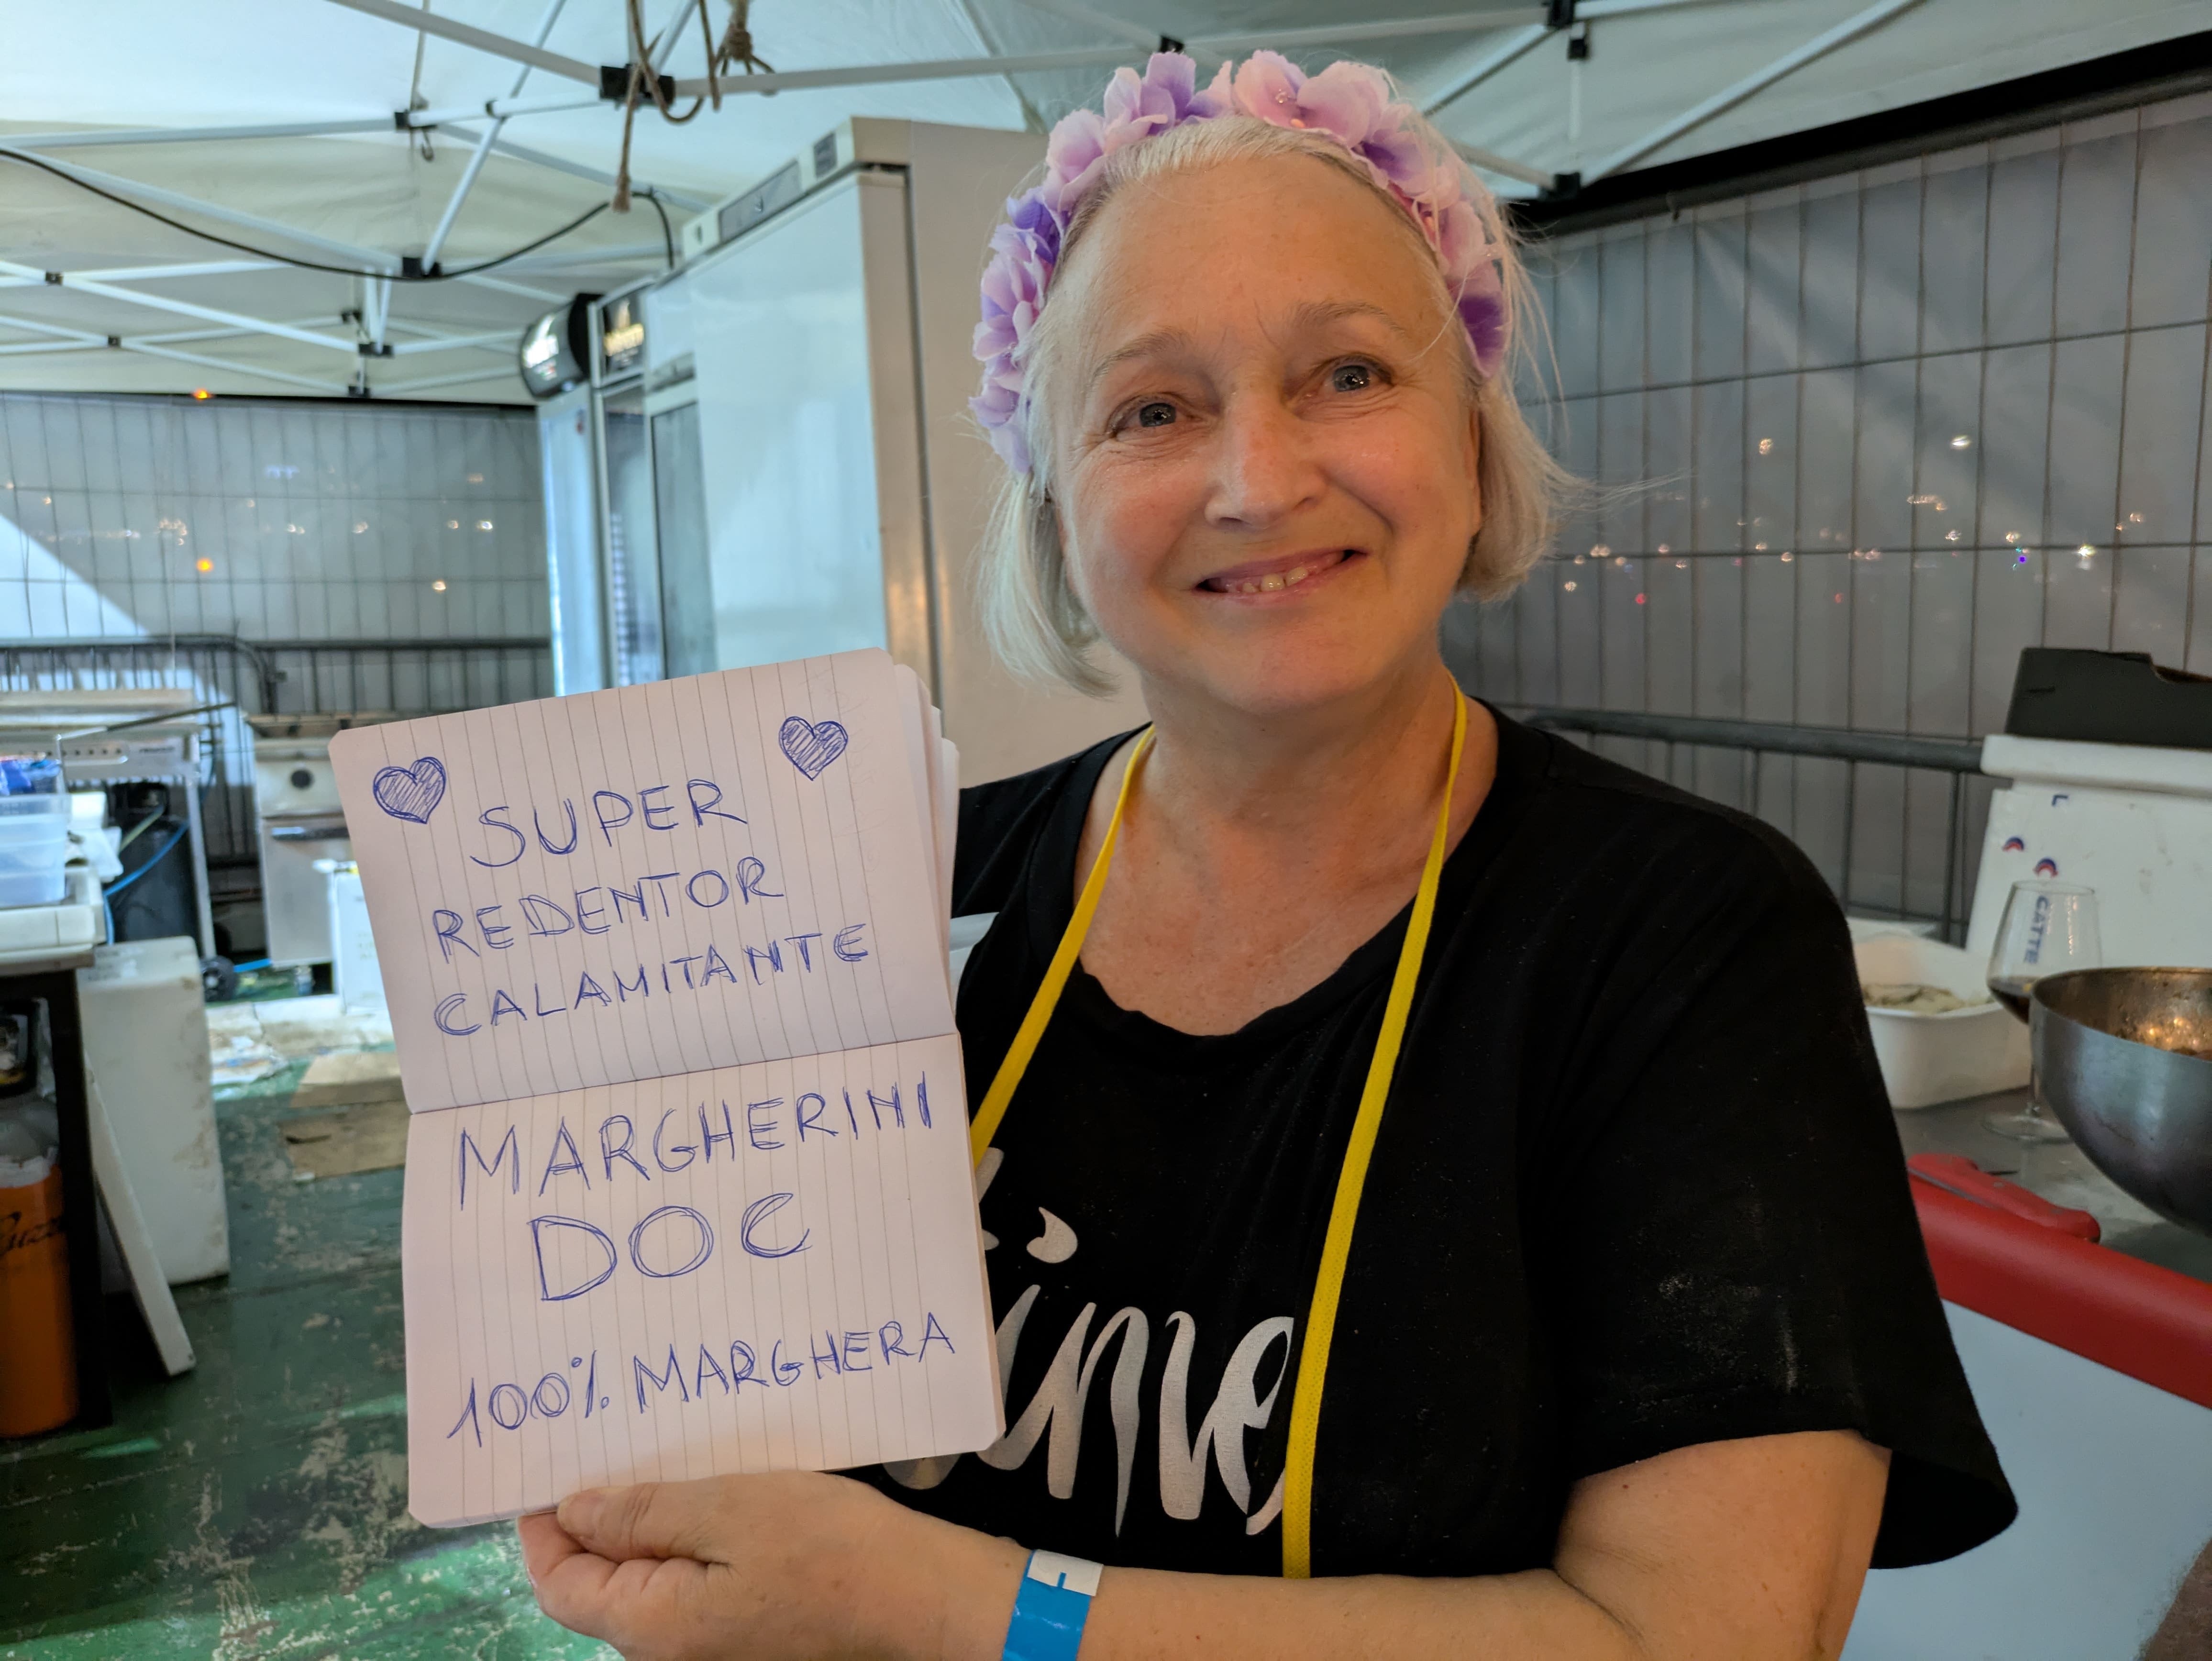 SUPER
REDENTOR
CALAMITANTE
MARGHERINI
DOC
100% MARGHERA
ime
CATTE